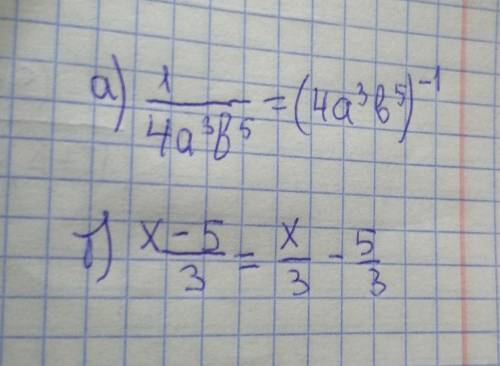 а) 1/4a³b⁵ = (4a³b⁵)⁻¹
б) x-5/3 = x/3 - 5/3